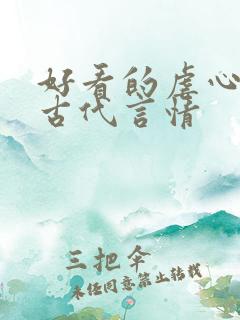 好看的虐心
古代言情
三把伞
未经同意禁止转载